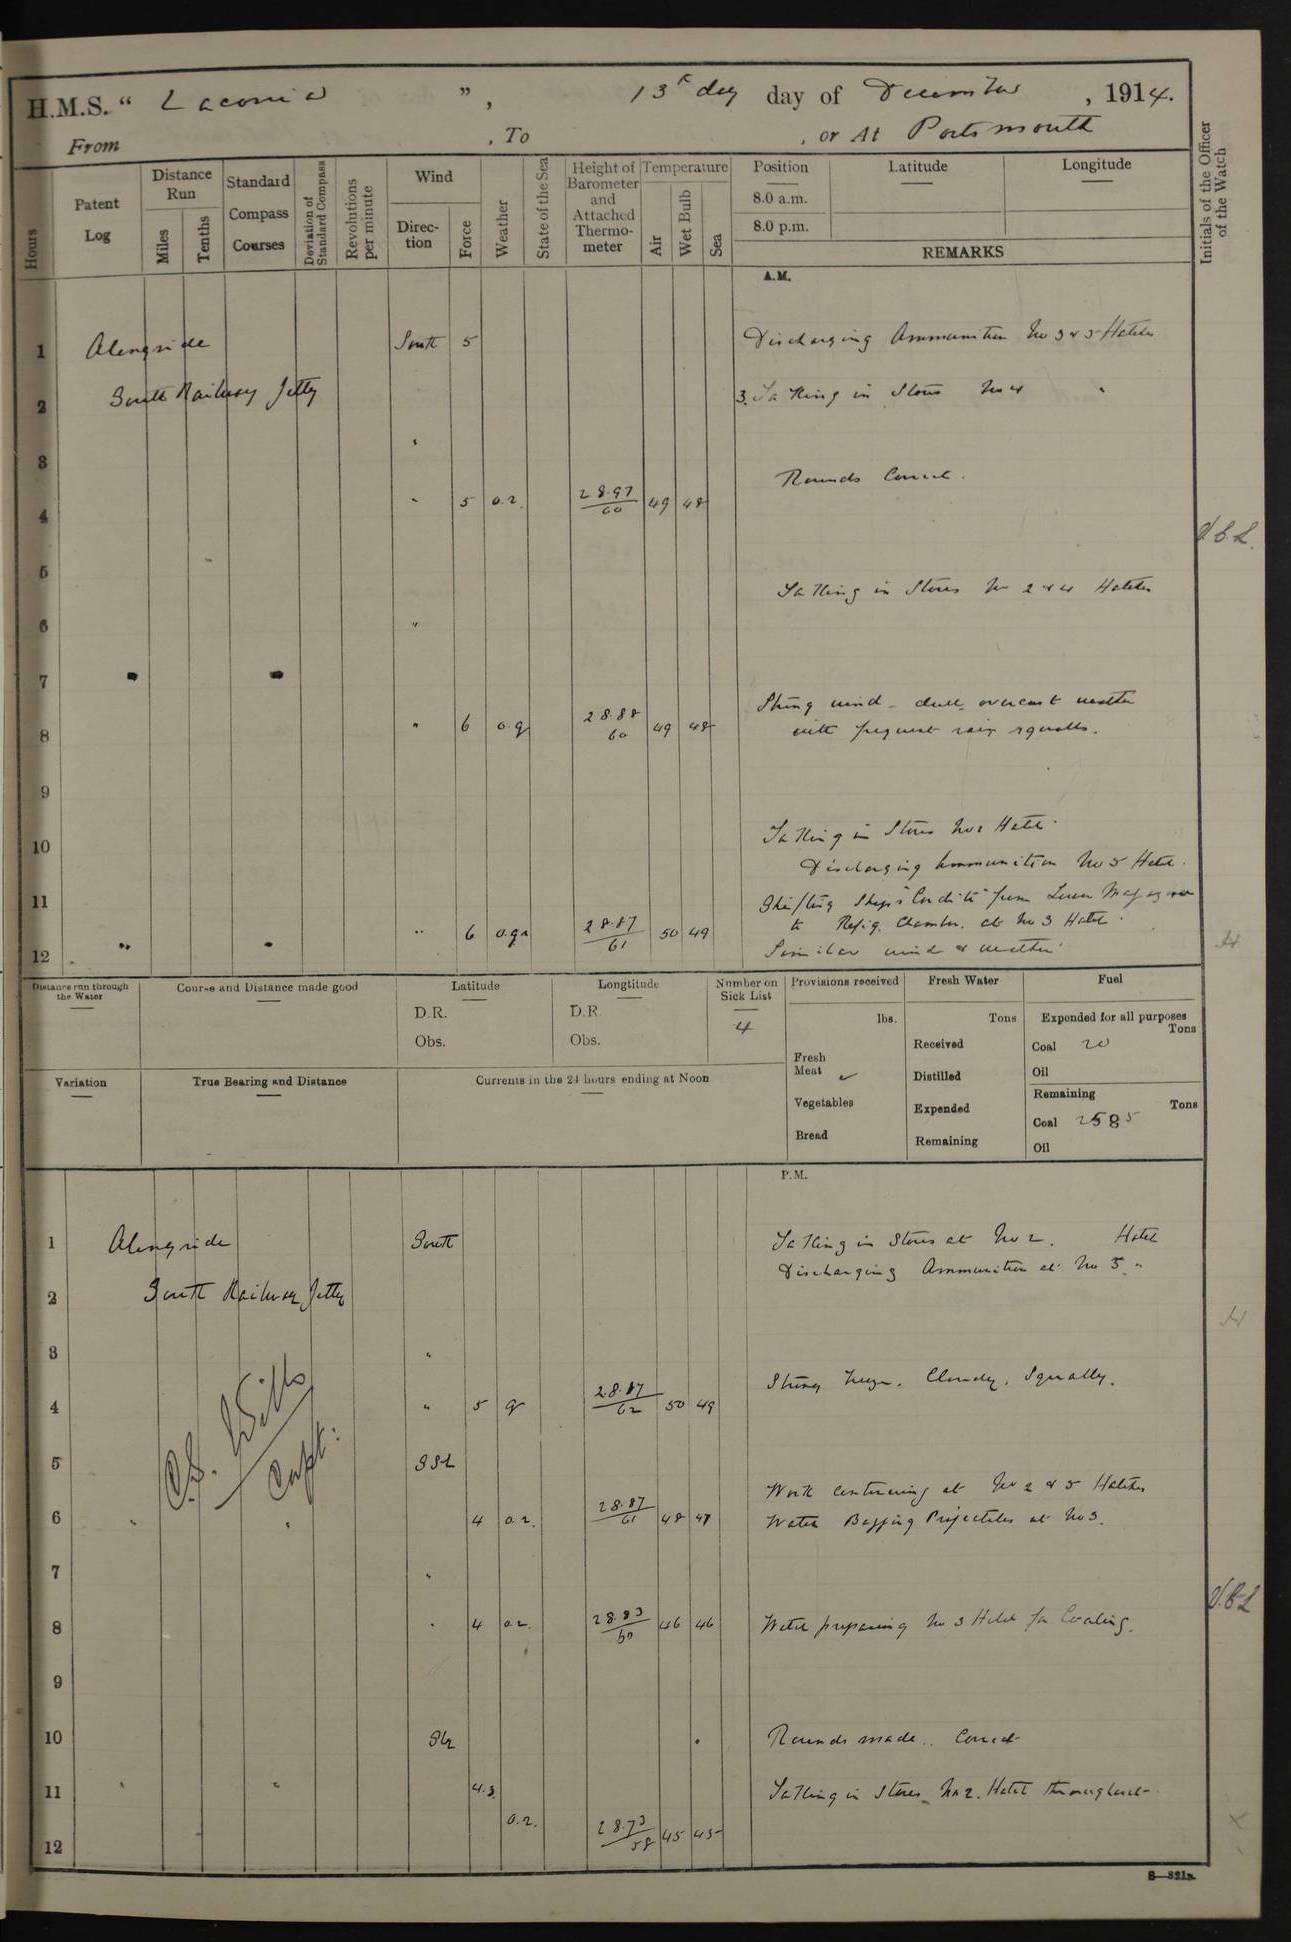 H.M.S. “ Laconia ” , 13th day day of December , 1914.
From , To , or At Portsmouth
Hours
Patent Log
Distance Run
Miles
Tenths
Standard Compass Courses
Deviation of Standard Compass
Revolutions per minute
Wind
Direction
Force
Weather
State of the Sea
Height of Barometer and Attached Thermometer
Temperature
Air
Wet Bulb
Sea
Position
8.0 a.m.
8.0 p.m.
Latitude
Longitude
REMARKS
Initials of the Officer of the Watch
A.M.
1 Alongside South 5 Discharging Ammunition No 3 & 5 Hatches
2 South Railway Jetty 3. Taking in Stores No 4 "
3 "
Rounds Correct.
4 " 5 o.r. 28.97/60 49 48
5
Taking in Stores No 2 & 4 Hatches
6 "
7
Strong wind - dull overcast weather
8 " 6 o.q 28.88/60 49 48 with frequent rain squalls.
9
10 Taking in Stores No 2 Hatch.
Discharging Ammunition No 5 Hatch.
11 Shifting Ship's "Cordite" from Lower Magazine
" 6 o.q.r 28.87/61 50 49 to Refrig. Chamber. at No 3 Hatch.
12 Similar wind & weather
Distance run through the Water
Course and Distance made good
Latitude
D.R.
Obs.
Longtitude
D.R.
Obs.
Number on Sick List
4
Provisions received
lbs.
Fresh Meat
Vegetables
Bread
Fresh Water
Tons
Received
Distilled
Expended
Remaining
Fuel
Expended for all purposes
Tons
Coal 20
Oil
Remaining
Tons
Coal 2585
Oil
Variation
True Bearing and Distance
Currents in the 24 hours ending at Noon
P.M.
1 Alongside South Taking in Stores at No 2. Hatch
Discharging Ammunition at No 5. "
2 South Railway Jetty
3 "
Strong breeze. Cloudy. Squally.
4 " 5 q 28.87/62 50 49
C.S. Wills
Capt:
5
Work continuing at No 2 & 5 Hatches
6 4 o.r. 28.87/61 48 47 Watch Projectiles at No 3.
7 "
8 " 4 o.r. 28.83/60 46 46 Watch preparing No 3 Hold for Coaling.
9
10 Rounds made.. Correct
11 4.3 Taking in Stores No 2. Hatch throughout
o.r. 28.73/58 45 45
12
S—321a.